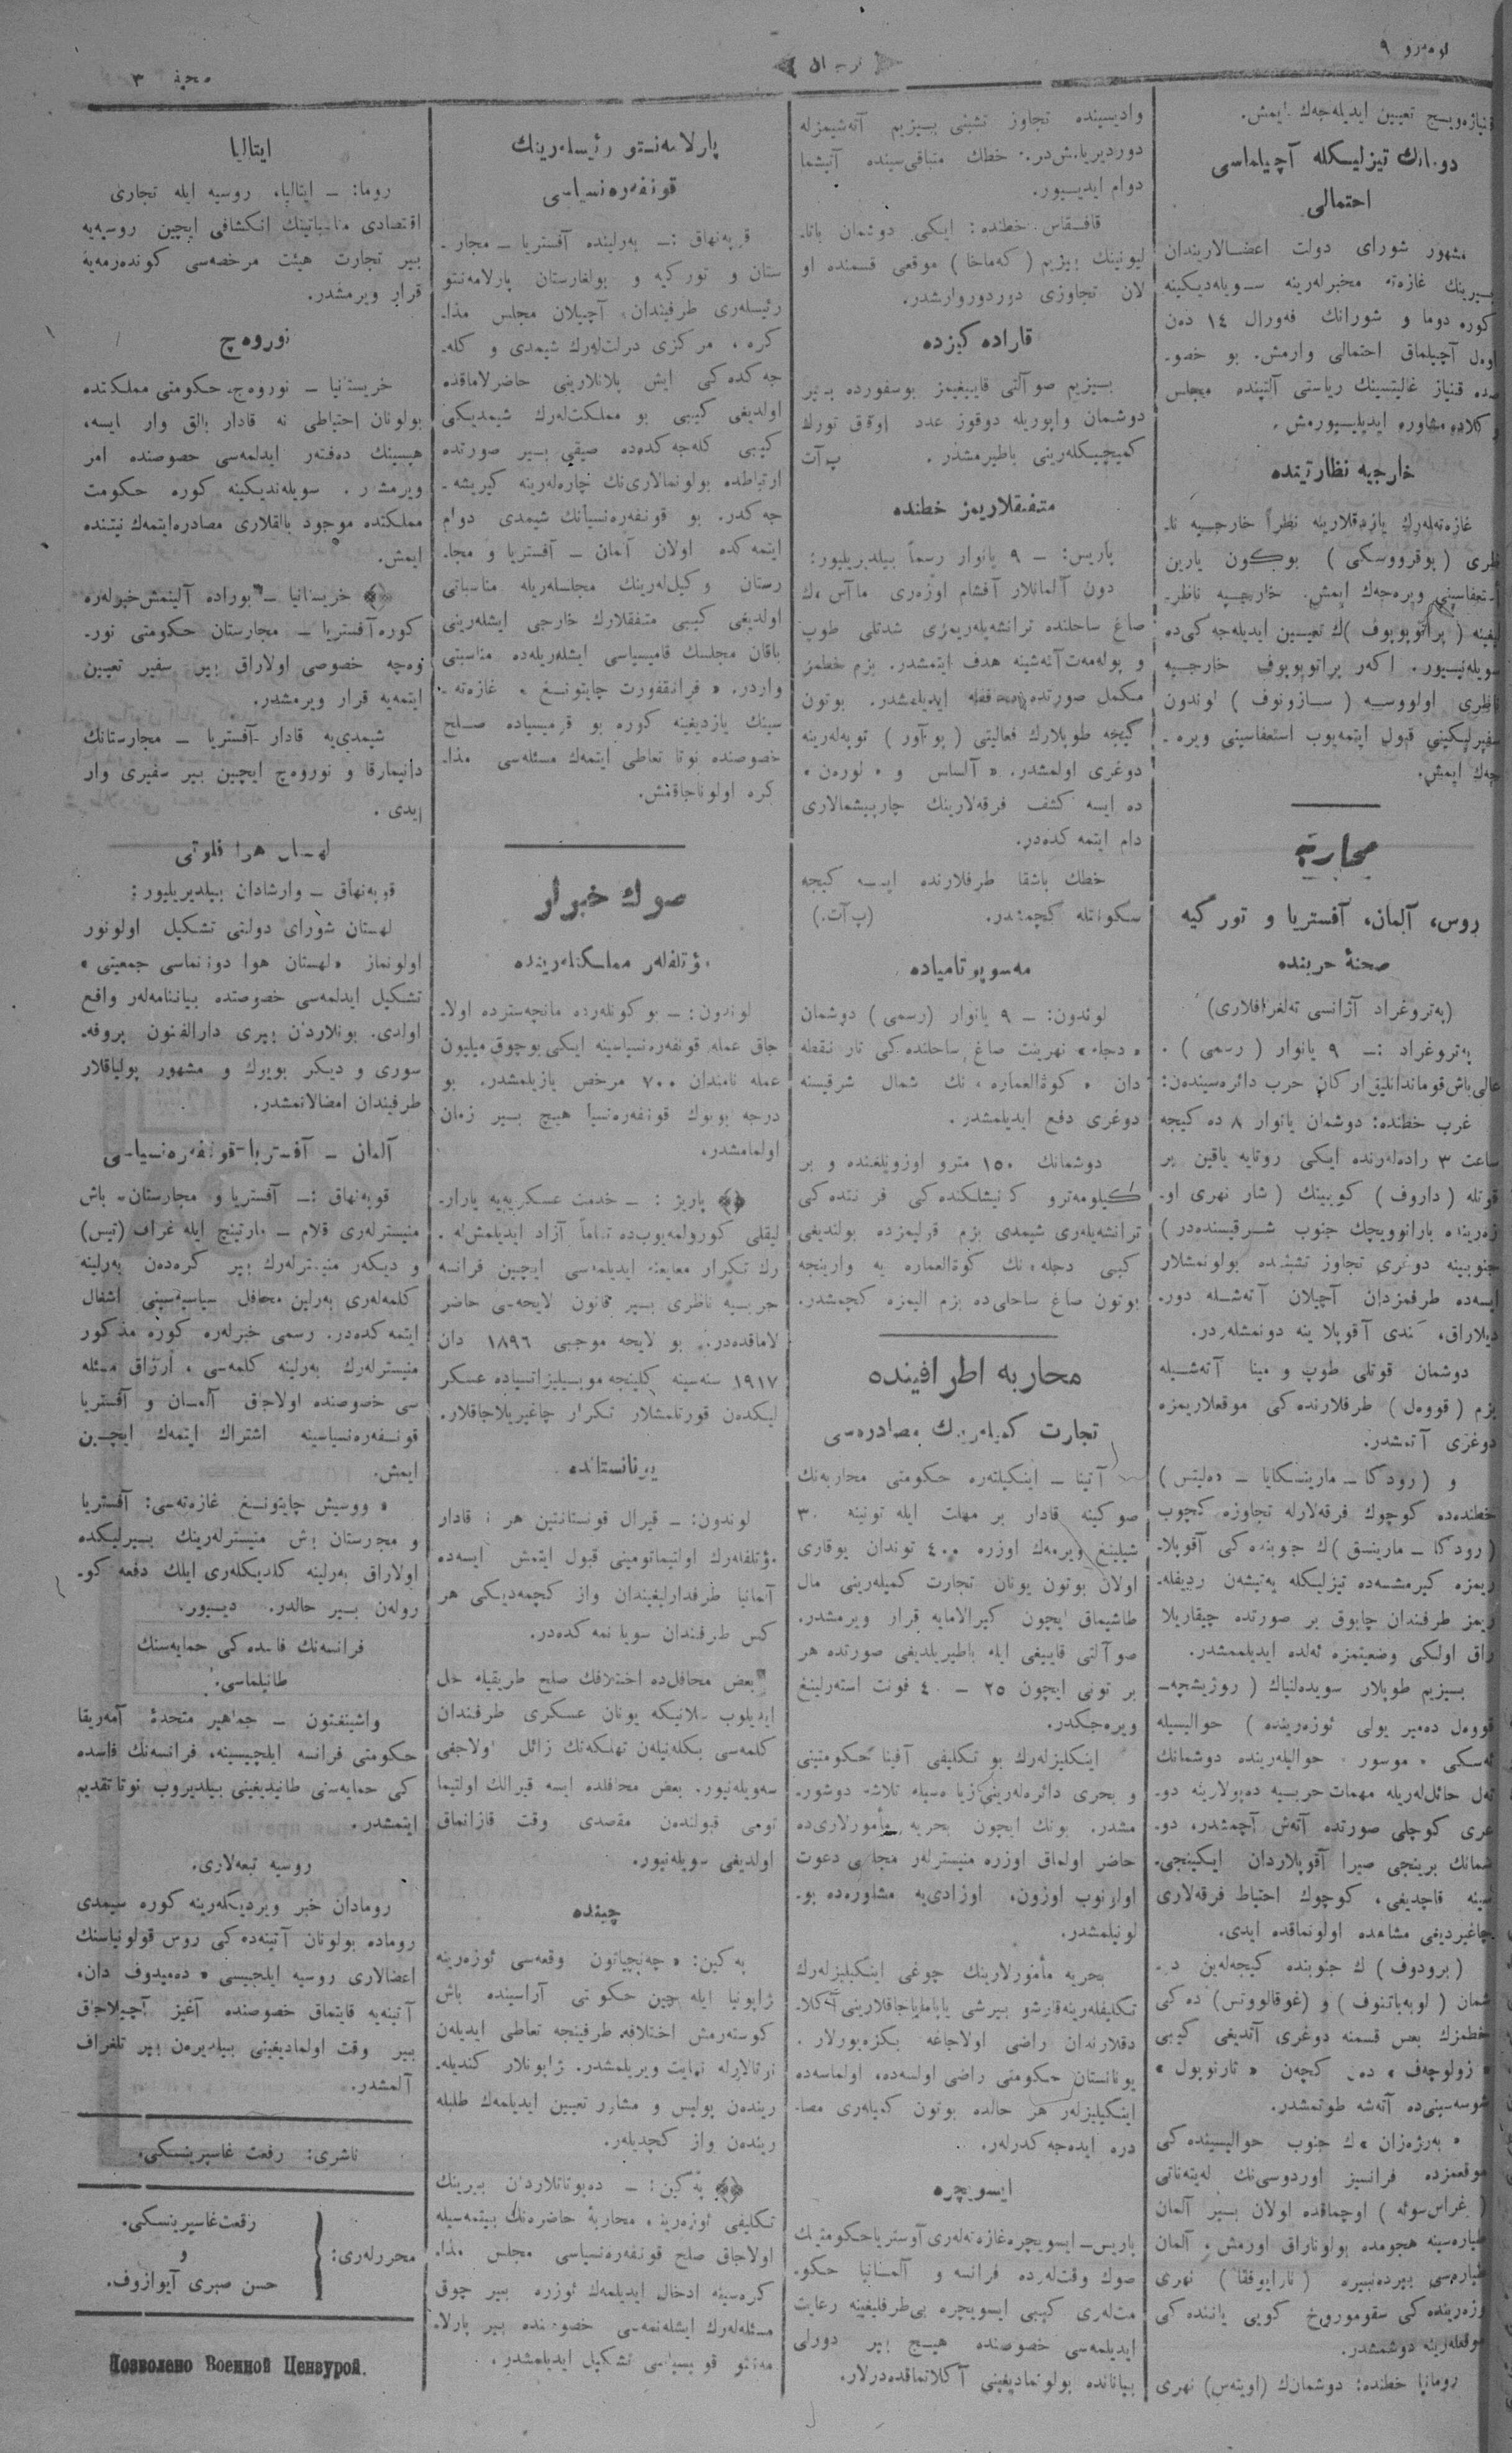 نومه‌رو ٩
ترجمان
صحیفه ٣
نیازوویچ تعیین ایدیله‌جه‌ك ایمش.
دومانك تیزلیكله آچیلماسی
احتمالی
مشهور شورای دولت اعضالاریندان
بیرینك غازه‌ته مخبرلرینه سویله‌دیكینه
كوره دوما و شورانك فه‌ورال ١٤ ده‌ن
اوه‌ل آچیلماق احتمالی وارمش. بو خصو-
صده قنیاز غالیتسینك ریاستی آلتینده مجلس
وكلاده مشاوره ایدیلییورمش.
خارجیه نظارتینده
غازه‌ته‌له‌رك یازدقلارینه نظراً خارجیه نا-
ظری (پوقرووسكی) بوكون یارین
استعفاسینی ویره‌جه‌ك ایمش. خارجیه ناظر-
لیغینه (پراتوپوپوف)ك تعیین ایدیله‌جه‌كی‌ده
سویله‌نییور. اكه‌ر پراتوپوپوف خارجیه
ناظری اولورسه (سازونوف) لوندون
سفیرلیكینی قبول ایتمه‌یوب استعفاسینی ویره-
جه‌ك ایمش.
محاربه
روس، آلمان، آفستریا و توركیه
صحنهٔ حربنده
(په‌تروغراد آژانسی ته‌لغرافلاری)
په‌تروغراد :— ٩ یانوار (رسمی).
عالی باش قوماندانلیق اركان حرب دائره‌سینده‌ن:
غرب خطنده: دوشمان یانوار ٨ ده كیجه
ساعت ٣ راده‌له‌رنده ایكی روتایه یاقین بر
قوتله (داروف) كویینك (شار نهری او-
زه‌رینده بارانوویچك جنوب شرقیسنده‌در)
جنوبینه دوغری تجاوز تشبثنده بولونمشلار
ایسه‌ده طرفمزدان آچیلان آتشله دور-
دیلاراق، كندی آقوپلارینه دونمشله‌ردر.
دوشمان قوتلی طوپ و مینا آتشیله
بزم (قووه‌ل) طرفلارنده‌كی موقعلاریمزه
دوغری آتمشدر.
و (رودكا — مارینسكایا — ده‌لیتس)
خطنده‌ده كوچوك فرقه‌لارله تجاوزه كچوب
(رودكا — مارینسق)ك جنوبنده‌كی آقوپلا-
ریمزه كیرمشسه‌ده تیزلیكله یه‌تیشه‌ن ردیفله-
ریمز طرفندان چابوق بر صورتده چیقاریلا
راق اولكی وضعیتمزه ئه‌لده ایدیلممشدر.
بیزیم طوپلار سویده‌لنیاك (روژیشچه—
قووه‌ل ده‌میر یولی ئوزه‌رینده) حوالیسیله
ئه‌سكی «موسور» حوالیله‌رینده دوشمانك
ته‌ل حائل‌له‌ریله مهمات حربیه ده‌پولارینه دو-
غری كوچلی صورتده آتش آچمشدر، دو-
شمانك برینجی صیرا آقوپلاردان ایكینجی-
سینه قاچدیغی، كوچوك احتیاط فرقه‌لاری
چاغیردیغی مشاهده اولونماقده ایدی.
(برودوف)ك جنوبنده كیجه‌له‌ین دو-
شمان (لوبه‌یاتنوف) و (غوقالووتس) ده‌كی
خطمزك بعض قسمنه دوغری آتدیغی كیبی
«زولوچه‌ف» ده‌ن كچه‌ن «تارنوپول»
شوسه‌سینی‌ده آتشه طوتمشدر.
«به‌رژه‌زان»ك جنوب حوالیسینده‌كی
موقعمزده فرانسیز اوردوسی‌نك له‌یته‌ناتی
(غراس‌سوئه) اوچماقده اولان بیر آلمان
طیاره‌سینه هجومده بولوناراق اورمش، آلمان
طیاره‌سی بیرده‌نبیره (نارایوفقا) نهری
ئوزه‌رینده‌كی سقوموروخ كویی یاننده‌كی
موقعله‌رینه دوشمشدر.
رومانیا خطنده: دوشمان‌ك (اویته‌س) نهری
وادیسینده تجاوز تشبثی بیزیم آتشیمزله
دوردیریلمش‌در. خطك متباقی‌سینده آتیشما
دوام ایدییور.
قافقاس خطنده: ایكی دوشمان باتا-
لیونینك بیزیم (كه‌ماخا) موقعی قسمنده او
لان تجاوزی دوردورولمشدر.
قاراده‌كیزده
بیزیم صوآلتی قاییغیمز بوسفورده بیر
دوشمان واپوریله دوقوز عدد اوفاق تورك
كمیچیكله‌رینی باطیرمشدر. پ آت
متفقلاریمز خطنده
پاریس: — ٩ یانوار رسماً بیلدیریلیور:
دون آلمانلار آقشام اوزه‌ری ماآس‌ك
صاغ ساحلنده ترانشه‌یله‌ریمزی شدتلی طوپ
و پوله‌مه‌ت آتشینه هدف ایتمشدر. بزم خطمز
مكمل صورتده مدافعه ایدیلمشدر. بوتون
كیجه طوپلارك فعالیتی (بوآور) توپه‌له‌رینه
دوغری اولمشدر. «آلساس و «لوره‌ن»
ده ایسه كشف فرقه‌لارینك چارپیشمالاری
دام ایتمه‌كده‌در.
خطك باشقا طرفلارنده ایسه كیجه
سكونتله كچمشدر. (پ آت.)
مه‌سوپوتامیاده
لوندون: — ٩ یانوار (رسمی) دوشمان
«دجله» نهرینك صاغ ساحلنده‌كی تار نقطه
دان «كوة‌العماره» نك شمال شرقیسنه
دوغری دفع ایدیلمشدر.
دوشمانك ١٥٠ مترو اوزونلغنده و بر
كیلومه‌ترو كنیشلكنده‌كی فرنتده‌كی
ترانشه‌یله‌ری شیمدی بزم قولیمزده بولندیغی
كبی دجله‌نك كوة‌العماره یه وارینجه
بوتون صاغ ساحلی‌ده بزم الیمزه كچمشدر.
محاربه اطرافینده
تجارت كمیله‌رینك مصادره‌سی
آتینا — اینكیلتره حكومتی محاربه‌نك
صوكینه قادار بر مهلت ایله تونینه ٣٠
شیلینغ ویرمه‌ك اوزره ٤٠٠ توندان یوقاری
اولان بوتون یونان تجارت كمیله‌رینی مال
طاشیماق ایچون كیرالامایه قرار ویرمشدر.
صوآلتی قاییغی ایله باطیریلدیغی صورتده هر
بر تونی ایچون ٢٥ — ٤٠ فونت استه‌رلینغ
ویره‌جكدر.
اینكلیزله‌رك بو تكلیفی آفینا حكومتینی
و بحری دائره‌له‌رینی زیاده‌سیله تلاشه دوشور-
مشدر. بونك ایچون بحریه مأمورلاری‌ده
حاضر اولماق اوزره منیسترله‌ر مجلسی دعوت
اولونوب اوزون، اوزادیه مشاوره‌ده بو-
لونیلمشدر.
بحریه مأمورلارینك چوغی اینكیلیزله‌رك
تكلیفله‌رینه قارشو بیرشی یاپامایاجاقلارینی آكلا-
دقلارندان راضی اولاجاغه بكزه‌یورلار.
یونانستان حكومتی راضی اولسه‌ده، اولماسه‌ده
اینكیلیزله‌ر هر حالده بوتون كمیله‌ری مصا-
دره ایده‌جه‌كدرله‌ر.
ایسویچره
پاریس— ایسویچره غازه‌ته‌له‌ری آوستریا حكومتینك
صوك وقت‌له‌رده فرانسه و آلمانیا حكو-
مت‌له‌ری كیبی ایسویچره بی‌طرفلیغینه رعایت
ایدیلمه‌سی خصوصنده هیچ بیر دورلی
بیاناتده بولونمادیغینی آكلاتماقده‌درلار.
پارلامه‌نتو رئیسله‌رینك
قونفه‌ره‌نسیاسی
قوپه‌نهاق :— به‌رلینده آفستریا — مجار-
ستان و توركیه و بولغارستان پارلامه‌نتو
رئیسله‌ری طرفیندان، آچیلان مجلس مذا-
كره، مركزی دولت‌له‌رك شیمدی و كله-
جه‌كده‌كی ایش پلانلارینی حاضرلاماقده
اولدیغی كیبی بو مملكت‌له‌رك شیمدیكی
كیبی كله‌جه‌كده‌ده صیقی بیر صورتده
ارتباطده بولونمالاری‌نك چاره‌له‌رینه كیریشه-
جه‌كدر. بو قونفه‌ره‌نسیانك شیمدی دوام
ایتمه‌كده اولان آلمان — آفستریا و مجا-
رستان وكیل‌له‌رینك مجلسله‌ریله مناسباتی
اولدیغی كیبی متفقلارك خارجی ایشله‌رینی
باقان مجلسك قامیسیاسی ایشله‌ریله‌ده مناسبتی
واردر. «فرانقفورت چایتونغ» غازه‌ته-
سینك یازدیغینه كوره بو قومیسیاده صلح
خصوصنده نوتا تعاطی ایتمه‌ك مسئله‌سی مذا-
كره اولوناجاقمش.
صوك خبرلر
مؤتلفله‌ر مملكتله‌رینده
لوندون: — بو كونله‌رده مانچه‌سترده اولا-
جاق عمله قونفه‌ره‌نسیاسینه ایكی بوچوق میلیون
عمله نامندان ٧٠٠ مرخص یازیلمشدر. بو
درجه بویوك قونفه‌ره‌نسیا هیچ بیر زمان
اولمامشدر.
پاریژ: — خدمت عسكریه‌یه یارار-
لیقلی كورولمه‌یوب‌ده تماماً آزاد ایدیلمش‌له-
رك تكرار معاینه ایدیلمه‌سی ایچین فرانسه
حربیه ناظری بیر قانون لایحه‌سی حاضر
لاماقده‌در. بو لایحه موجبی ١٨٩٦ دان
١٩١٧ سنه‌سینه كلینجه موبیلیزاتسیاده عسكر
لیكدن قورتلمشلار تكرار چاغیریلاجاقلار.
یونانستانده
لوندون: — قیرال قونستانتین هر نه قادار
مؤتلفله‌رك اولتیماتومینی قبول ایتمش ایسه‌ده
آلمانیا طرفدارلیغیندان واز كچمه‌دیكی هر
كس طرفندان سویلنمه‌كده‌در.
بعض محافل‌ده اختلافك صلح طریقیله حل
ایدیلوب سلانیكه یونان عسكری طرفندان
كلمه‌سی بكله‌نیله‌ن تهلكه‌نك زائل اولاجغی
سه‌ویله‌نیور. بعض محافلده ایسه قیرالك اولتیما
تومی قبولندن مقصدی وقت قازانماق
اولدیغی سویله‌نیور.
چینده
په‌كین: «چه‌نجیاتون وقعه‌سی ئوزه‌رینه
ژاپونیا ایله چین حكومتی آراسینده باش
كوسته‌رمش اختلافه طرفینجه تعاطی ایدیله‌ن
نوتالارله نهایت ویریلمشدر. ژاپونلار كندیله-
رینده‌ن پولیس و مشاور تعیین ایدیلمه‌ك طلبله
رینده‌ن واز كچدیله‌ر.
په‌كین: — ده‌پوتاتلاردان بیرینك
تكلیفی ئوزه‌رینه محاربهٔ حاضره‌نك بیتمه‌سیله
اولاجاق صلح قونفه‌ره‌نسیاسی مجلس مذا-
كره‌سینه ادخال ایدیلمه‌ك ئوزره بیر چوق
مسئله‌له‌رك ایشله‌نمه‌سی خصوصنده بیر پارلا-
مه‌نتو قومیسیاسی تشكیل ایدیلمشدر.
ایتالیا
روما: — ایتالیا، روسیه ایله تجاری
اقتصادی مناسباتینك انكشافی ایچین روسیه‌یه
بیر تجارت هیئت مرخصه‌سی كونده‌رمه‌یه
قرار ویرمشدر.
نوروه‌چ
خریستانیا — نوروه‌چ حكومتی مملكتده
بولونان احتیاطی نه قادار بالق وار ایسه،
هپسینك ده‌فته‌ر ایدلمه‌سی خصوصنده امر
ویرمشدر. سویله‌ندیكینه كوره حكومت
مملكتده موجود بالقلاری مصادره ایتمه‌ك نیتنده
ایمش.
خریستانیا — بوراده آلینمش خبرله‌ره
كوره آفستریا — مجارستان حكومتی نور-
وه‌چه خصوصی اولاراق بیر سفیر تعیین
ایتمه‌یه قرار ویرمشدر.
شیمدی‌یه قادار آفستریا — مجارستانك
دانیمارقا و نوروه‌چ ایچین بیر سفیری وار
ایدی.
لهستان هوا فلوتی
قوپه‌نهاق — وارشادان بیلدیریلیور:
لهستان شورای دولتی تشكیل اولونور
اولونماز «لهستان هوا دوننماسی جمعیتی»
تشكیل ایدلمه‌سی خصوصنده بیاننامه‌له‌ر واقع
اولدی. بونلاردن بیری دارالفنون پروفه-
سوری و دیكر بویوك و مشهور پولیاقلار
طرفیندان امضالانمشدر.
آلمان — آفستریا قونفه‌ره‌نسیاسی
قوپه‌نهاق :— آفستریا و مجارستان، باش
منیسترله‌ری قلام — مارتینچ ایله غراف (تیس)
و دیكه‌ر منیسترله‌رك بیر كره‌ده‌ن به‌رلینه
كلمه‌له‌ری به‌رلین محافل سیاسیه‌سینی اشغال
ایتمه‌كده‌در. رسمی خبرله‌ره كوره مذكور
منیسترله‌رك به‌رلینه كلمه‌سی، ارزاق مسئله
سی خصوصنده اولاجاق آلمان و آفستریا
قونفه‌ره‌نسیاسینه اشتراك ایتمه‌ك ایچین
ایمش.
«ووسیش چایتونغ غازه‌ته‌سی: آفستریا
و مجرستان باش منیسترله‌رینك بیرلیكده
اولاراق به‌رلینه كلدیكله‌ری ایلك دفعه كو-
روله‌ن بیر حالدر. دییور.
فرانسه‌نك فاسده‌كی حمایه‌سنك
طانیلماسی.
واشینغتون — جماهیر متحدهٔ آمه‌ریقا
حكومتی فرانسه ایلچیسینه، فرانسه‌نك فاسده
كی حمایه‌سنی طانیدیغینی بیلدیروب نوتا تقدیم
ایتمشدر.
روسیه تبعه‌لاری.
رومادان خبر ویردیكله‌رینه كوره شیمدی
روماده بولونان آتینه‌ده‌كی روس قولونیاسنك
اعضالاری روسیه ایلچیسی «ده‌میدوف دان،
آتینه‌یه قایتماق خصوصنده آغیز آچیلاجاق
بیر وقت اولمادیغینی بیلدیره‌ن بیر تلغراف
آلمشدر.
ناشری: رفعت غاسپرینسكی.
محررله‌ری:
رفعت غاسپرینسكی.
و
حسن صبری آیوازوف.
Дозволено Военной Цензурой.